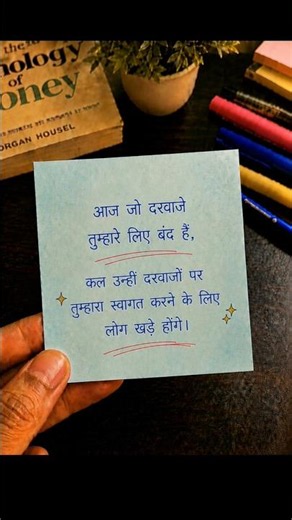 the
nology of
oney
ORGAN HOUSEL
आज जो दरवाजे
तुम्हारे लिए बंद हैं,
कल उन्हीं दरवाजों पर
तुम्हारा स्वागत करने के लिए
लोग खड़े होंगे।